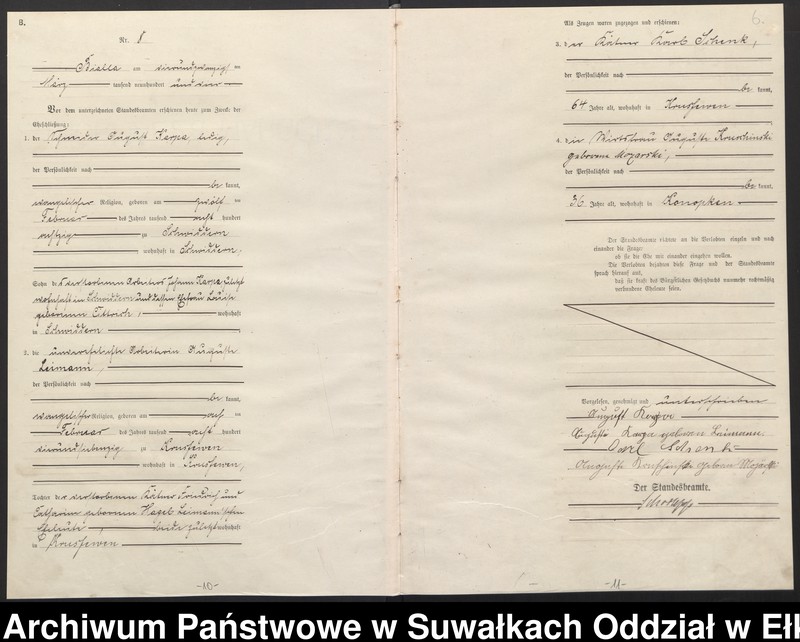 8.
Nr. 8
Bialla am vierundzwanzigsten
März tausend neunhundert und vier
Vor dem unterzeichneten Standesbeamten erschienen heute zum Zweck der
Eheschließung:
1. der Schneider August Karpa, ledig,
der Persönlichkeit nach
be kannt,
evangelischer Religion, geboren am zwölften
Februar des Jahres tausend acht hundert
achtzig zu Schwiddern
wohnhaft in Schwiddern,
Sohn des verstorbenen Arbeiters Johann Karpa zuletzt
wohnhaft in Schwiddern und dessen Ehefrau Louise
geborenen wohnhaft
in Schwiddern
2. die unverehelichte Arbeiterin Auguste
Leimann,
der Persönlichkeit nach
be kannt,
evangelischer Religion, geboren am
Februar des Jahres tausend acht hundert
vierundsiebenzig zu Krussewen
wohnhaft in Krussewen,
Tochter der verstorbenen Kätner Friedrich und
Catharina geborenen Leimann'schen
Eheleute, beide zuletzt wohnhaft
in Krussewen
-10-
6.
Als Zeugen waren zugezogen und erschienen:
3. der Kätner Karl Schenk,
der Persönlichkeit nach
be kannt,
64 Jahre alt, wohnhaft in Krussewen
4. die Wirtsfrau Auguste
geborene
der Persönlichkeit nach
be kannt,
36 Jahre alt, wohnhaft in Konopken
Der Standesbeamte richtete an die Verlobten einzeln und nach
einander die Frage:
ob sie die Ehe mit einander eingehen wollen.
Die Verlobten bejahten diese Frage und der Standesbeamte
sprach hierauf aus,
daß sie kraft des Bürgerlichen Gesetzbuchs nunmehr rechtmäßig
verbundene Eheleute seien.
Vorgelesen, genehmigt und unterschrieben
August Karpa
Auguste Karpa geboren Leimann
Carl Schenk
Auguste geboren
Der Standesbeamte.
-11-
Archiwum Państwowe w Suwałkach Oddział w Eł